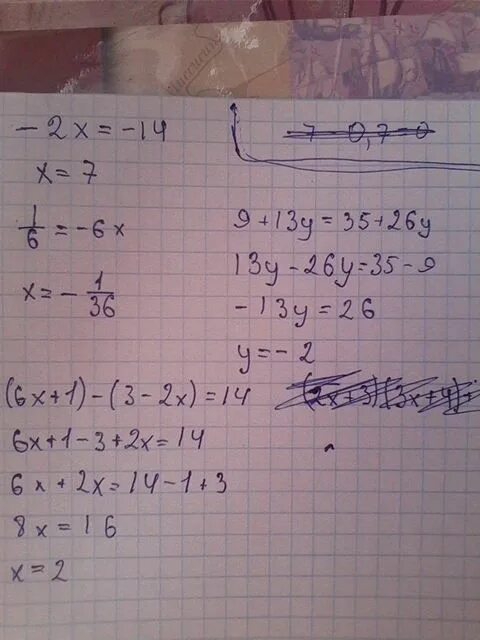 -2x=-14
x=7
1/6=-6x
x=-1/36
7-0,7=0
9+13y=35+26y
13y-26y=35-9
-13y=26
y=-2
(6x+1)-(3-2x)=14
6x+1-3+2x=14
6x+2x=14-1+3
8x=16
x=2
(2x+3)(3x+4)